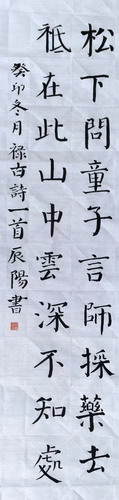 松下問童子言師採藥去
祗在此山中雲深不知處
癸卯冬月祿古詩一首辰陽書